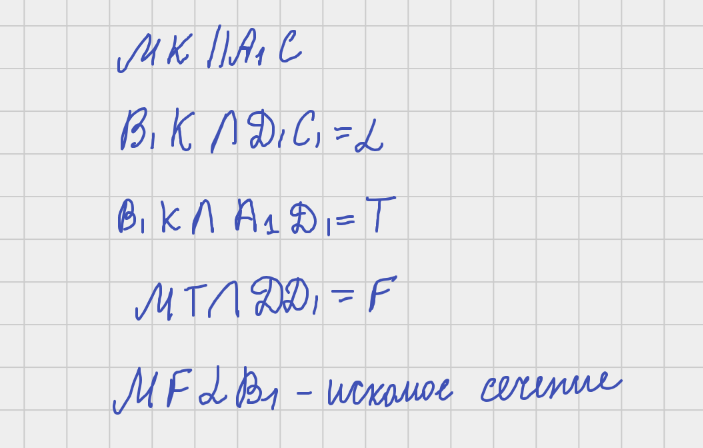 МК || A₁C
B₁K ∩ D₁C₁ = L
B₁K ∩ A₁D₁ = T
MT ∩ DD₁ = F
MFLB₁ - искомое сечение